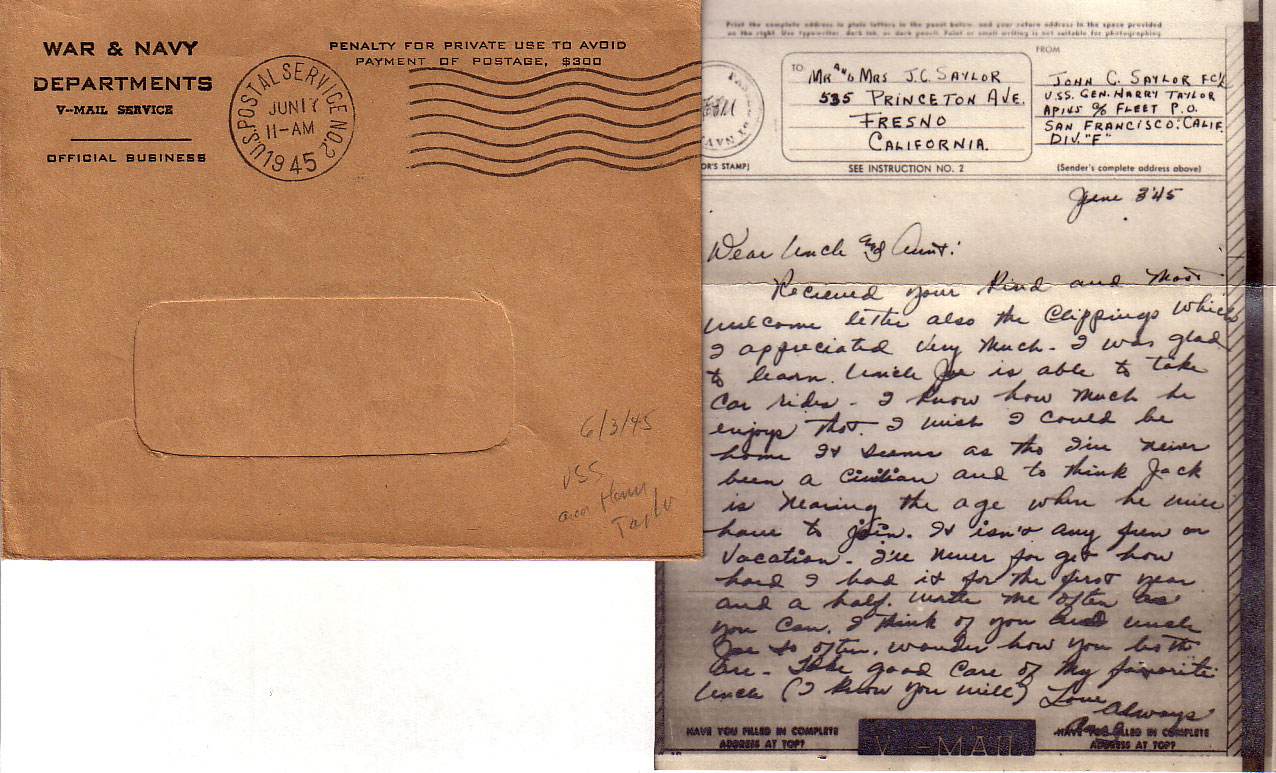 WAR & NAVY
DEPARTMENTS
V--MAIL SERVICE
OFFICIAL BUSINESS
U.S. POSTAL SERVICE NO. 2
JUN 17
11-AM
1945
PENALTY FOR PRIVATE USE TO AVOID
PAYMENT OF POSTAGE, $300
6/3/45
USS
Taylor
Print the complete address in plain letters in the panel below, and your return address in the space provided
on the right. Use typewriter, dark ink, or dark pencil. Faint or small writing is not suitable for photographing.
TO
MR AND MRS J.C. SAYLOR
535 PRINCETON AVE.
FRESNO
CALIFORNIA.
FROM
JOHN C. SAYLOR
U.S.S. GEN. HARRY TAYLOR
AP145 % FLEET P.O.
SAN FRANCISCO: CALIF.
DIV. "F"
OR'S STAMP)
SEE INSTRUCTION NO. 2
(Sender's complete address above)
June 3 '45
Dear Uncle and Aunt:
Recieved your kind and most
welcome letter also the clippings which
I appreciated very much - I was glad
to learn Uncle Joe is able to take
car rides - I know how much he
enjoys that. I wish I could be
home It seems as tho I've never
been a civilian and to think Jack
is nearing the age when he will
have to join. It isn't any fun or
vacation. I'll never forget how
hard I had it for the first year
and a half. Write me often as
you can. I think of you and uncle
Joe so often, wonder how you both
are - Take good care of my favorite
Uncle (I know you will) Love
Always
HAVE YOU FILLED IN COMPLETE
ADDRESS AT TOP?
V--MAIL
HAVE YOU FILLED IN COMPLETE
ADDRESS AT TOP?